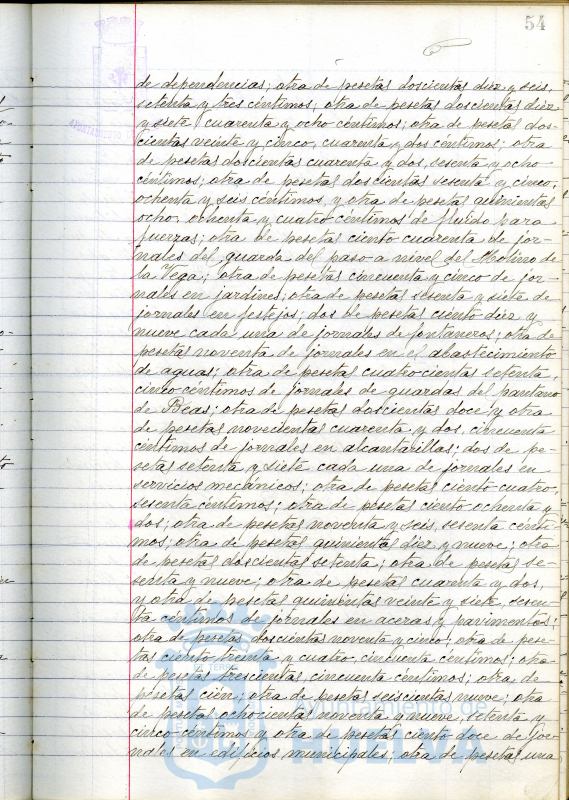 54
de dependencias; otra de pesetas doscientas diez y seis,
setenta y tres céntimos; otra de pesetas doscientas diez
y siete cuarenta y ocho céntimos; otra de pesetas dos-
cientas veinte y cinco, cuarenta y dos céntimos; otra
de pesetas doscientas cuarenta y dos, sesenta y ocho
céntimos; otra de pesetas doscientas sesenta y cinco,
ochenta y seis céntimos, y otra de pesetas quinientas
ocho, ochenta y cuatro céntimos de fluido para
fuerzas; otra de pesetas ciento cuarenta de jor-
nales del guarda del paso a nivel del Molino de
la Vega; otra de pesetas cincuenta y cinco de jor-
nales en jardines; otra de pesetas sesenta y siete de
jornales en festejos; dos de pesetas ciento diez y
nueve cada una de jornales de fontaneros; otra de
pesetas noventa de jornales en el abastecimiento
de aguas; otra de pesetas cuatrocientas setenta,
cinco céntimos de jornales de guardas del pantano
de Beas; otra de pesetas doscientas doce, y otra
de pesetas novecientas cuarenta y dos, cincuenta
céntimos de jornales en alcantarillas; dos de pe-
setas setenta y siete cada una de jornales en
servicios mecánicos; otra de pesetas ciento cuatro,
sesenta céntimos; otra de pesetas ciento ochenta y
dos; otra de pesetas noventa y seis, sesenta cénti-
mos; otra de pesetas quinientas diez y nueve; otra
de pesetas doscientas setenta; otra de pesetas se-
senta y nueve; otra de pesetas cuarenta y dos,
y otra de pesetas quinientas veinte y siete, sesen-
ta céntimos de jornales en aceras y pavimentos;
otra de pesetas doscientas noventa y cinco; otra de pese-
tas ciento treinta y cuatro, cincuenta céntimos; otra
de pesetas trescientas, cincuenta céntimos; otra de
pesetas cien; otra de pesetas seiscientas nueve; otra
de pesetas ochocientas noventa y nueve, setenta y
cinco céntimos y otra de pesetas ciento doce de jor-
nales en edificios municipales; otra de pesetas una
Ayuntamiento de
HUELVA